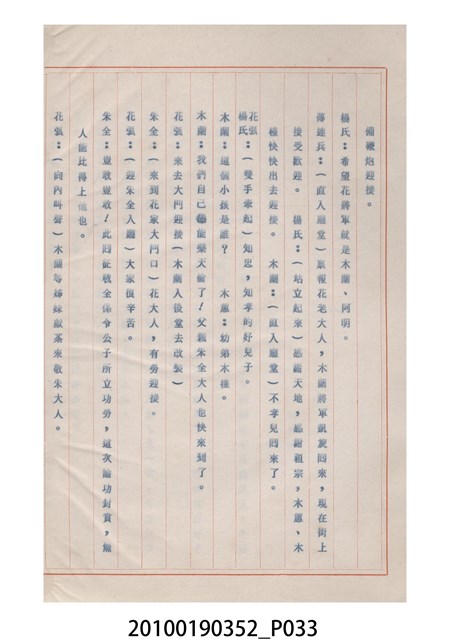 備鞭炮迎接。
楊氏：希望花將軍就是木蘭、阿明。
傳達兵：（直入廳堂）稟報花老大人，木蘭將軍凱旋回來，現在街上
接受歡迎。　楊氏：（站立起來）感謝天地，感謝祖宗，木蕙、木
槿快快出去迎接。　木蘭：（直入廳堂）不孝兒回來了。
花弧：
楊氏：（雙手牽起）知忠，知孝的好兒子。
木蘭：這個小孩是誰？　木蕙：幼弟木棣。
木蘭：我們自己能樂天倫了！父親朱全大人也快來到了。
花弧：來去大門迎接（木蘭入後堂去改裝）
朱全：（來到花家大門口）花大人，有勞迎接。
花弧：（迎朱全入廳）大家很辛苦。
朱全：豈敢豈敢！此回征戰全係令公子所立功勞，這次論功封賞，無
人能比得上他也。
花弧：（向內叫聲）木蘭等姊妹獻茶來敬朱大人。
20100190352_P033